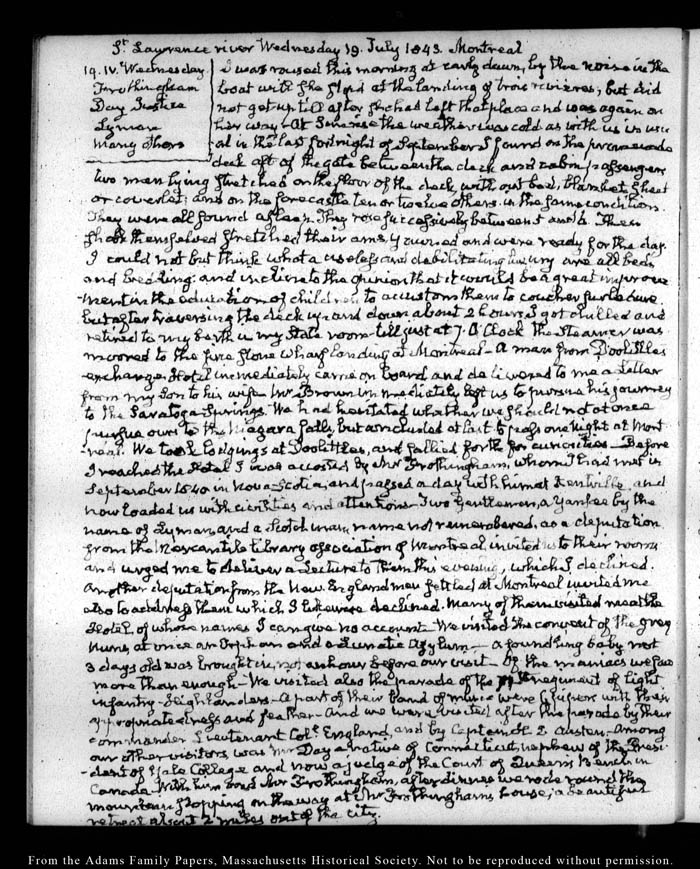 St. Lawrence river Wednesday 19. July 1843. Montreal
19. IV. Wednesday.
Frothingham
Day Justice
Lyman
Many others
I was roused this morning at early dawn, by the noise in the
boat with the stop at the landing of trois rivieres; but did
not get up till after she had left that place and was again on
her way. At Sunrise the weather was cold as with us is usu
al in the last fortnight of September. I found on the promenade
deck aft of the gate between the deck and cabin passengers
two men lying stretched on the floor of the deck, without bed, blanket, sheet
or coverlet; and on the forecastle ten or twelve others in the same condition.
They were all sound asleep. They rose successively between 5 and 6. Then
shook themselves stretched their arms, yawned and were ready for the day.
I could not but think what a useless and debilitating luxury are all beds
and bedding; and incline to the opinion that it would be a great improve
-ment in the education of children to accustom them to coucher sur la dure.
but after traversing the deck up and down about 2 hours, I got chilled and
retired to my berth in my State room till just at 7. O'Clock the Steamer was
moored to the fine stone wharf landing at Montreal - A man from Doolittles
exchange Hotel immediately came on board and delivered to me a Letter
from my Son to his wife. Mr Brown immediately left us to pursue his journey
to the Saratoga Springs. We had hesitated whether we should not at once
pursue ours to the Niagara falls, but concluded at last to pass one night at Mont
-real. We took lodgings at Doolittles, and sallied forth for curiosities - Before
I reached the Hotel I was accosted by a Mr Frothingham, whom I had met in
September 1840 in Nova-Scotia, and passed a day with him at Kentville, and
now loaded us with civilities and attentions. Two Gentlemen, a Yankee by the
name of Lyman, and a Scotchman, name not remembered, as a deputation
from the Mercantile Library association of Montreal invited us to their rooms
and urged me to deliver a Lecture to them this evening, which I declined.
Another deputation from the New England men settled at Montreal invited me
also to address them which I likewise declined. Many of them visited me at the
Hotel of whose names I can give no account. We visited the convent of the grey
Nuns, at once an Orphan and a Lunatic Asylum - a foundling baby not
3 days old was brought in, not an hour before our visit - Of the maniacs we saw
more than enough - We visited also the parade of the regiment of light
infantry - Highlanders - A part of their band of music were with their
appropriate dress and feather - And we were visited after the parade by their
commander Lieutenant Colt. England, and by Captain Austen. Among
our other visitors was Mr Day a native of Connecticut, nephew of the Presi
-dent of Yale College and now a judge of the Court of Queen's Bench in
Canada. With him and Mr Frothingham, after dinner we rode round the
mountain stopping on the way at Mr Frothingham's house; a beautiful
retreat about 2 miles out of the city.
From the Adams Family Papers, Massachusetts Historical Society. Not to be reproduced without permission.